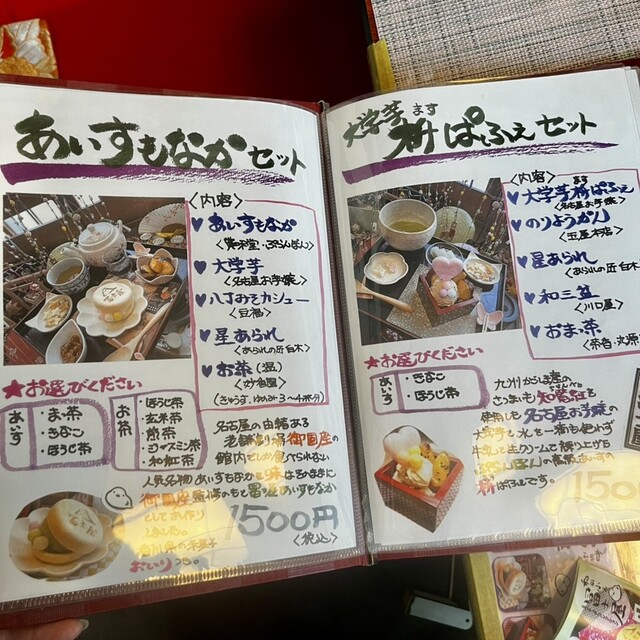 あいすもなかセット
〈内容〉
♥あいすもなか
♥大学芋
〈名古屋お芋嬢〉
♥八丁みそカシュー
〈豆福〉
♥星あられ
〈あられの匠白木〉
♥お茶〈温〉
〈妙香園〉
〈きゅうす、ゆのみ3〜4杯分〉
★お選びください
あいす
・まっ茶
・きなこ
・ほうじ茶
お茶
・ほうじ茶
・玄米茶
・煎茶
・ジャスミン茶
・和紅茶
名古屋の由緒ある
老舗劇場御園座の
館内でしか食べられない
人気名物あいすもなか
としてお作り
しました。
おいりつき。
1500円
〈税込〉
大学芋ます枡ぱふぇセット
〈内容〉
♥大学芋枡ぱふぇ
ます
〈名古屋お芋嬢〉
♥のりようかん
♥星あられ
〈あられの匠白木〉
♥和三盆
〈川口屋〉
♥おまっ茶
★お選びください
あいす
・きなこ
・ほうじ茶
九州かしま産の
さつまいも知覧紅を
使用した名古屋お芋嬢の
大学芋と水を一滴も使わず
枡ぱふぇです。